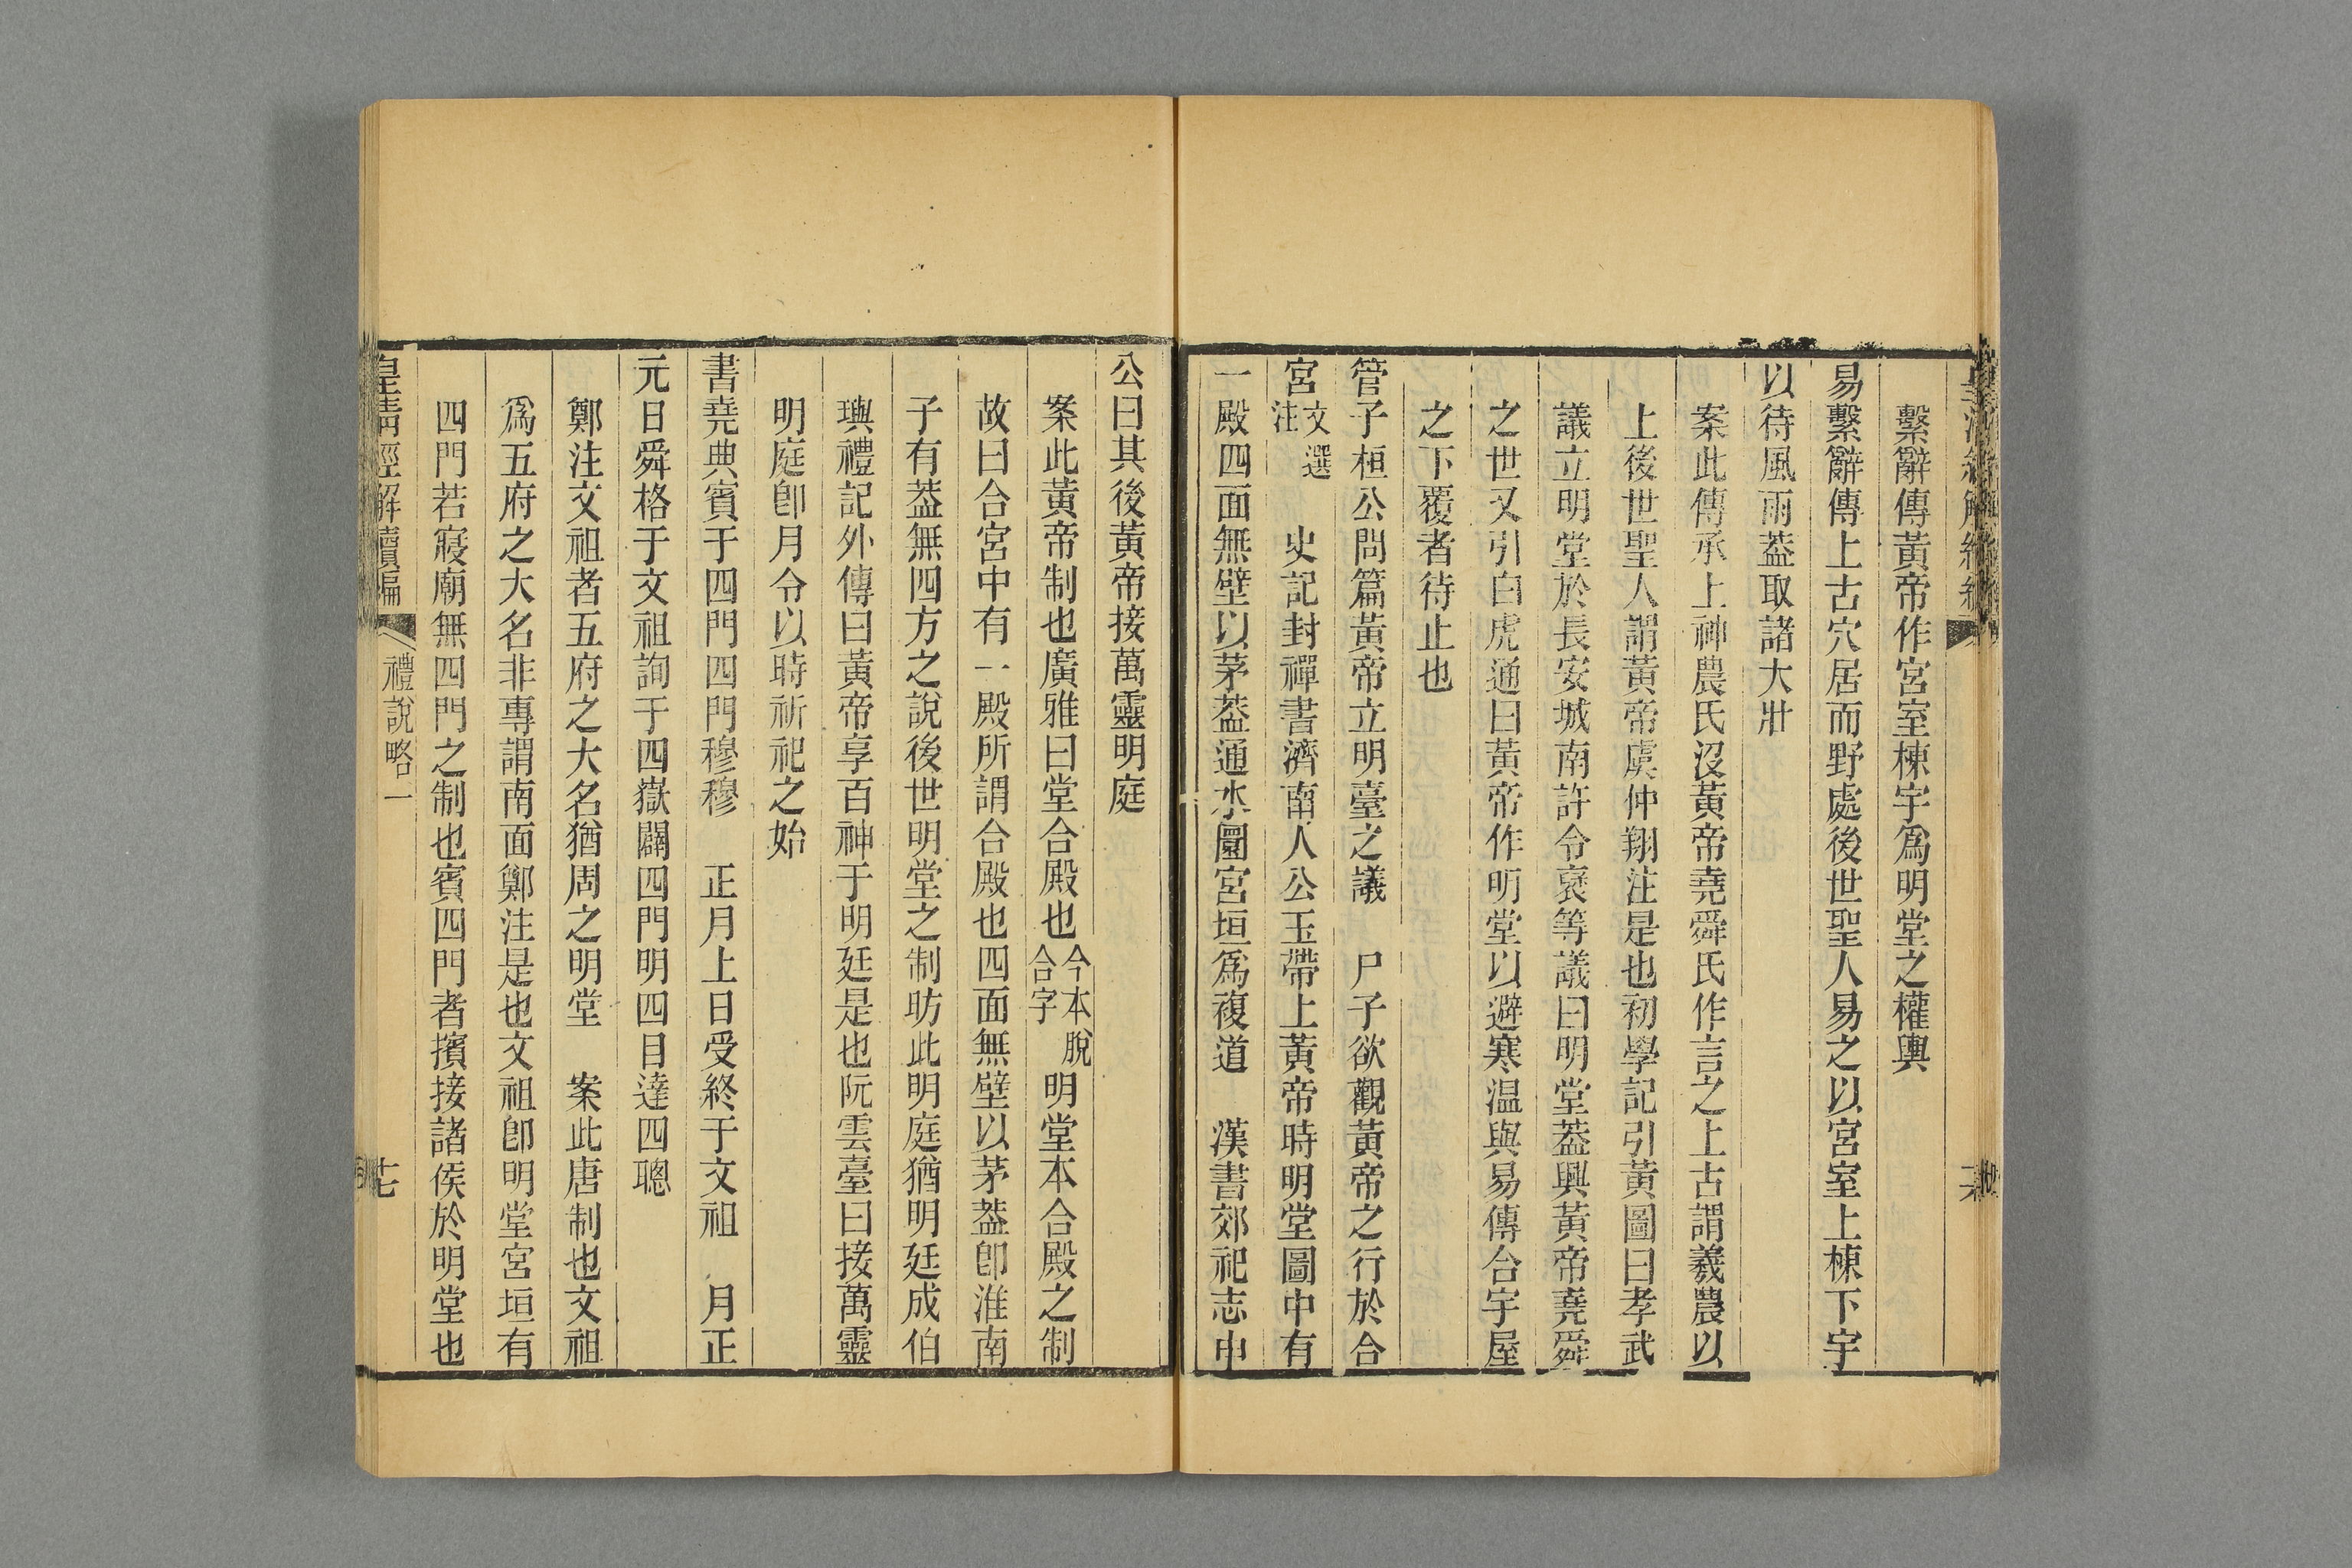 繫辭傳黃帝作宮室棟宇爲明堂之權輿
易繫辭傳上古穴居而野處後世聖人易之以宮室上棟下宇
以待風雨葢取諸大壯
案此傳承上神農氏沒黃帝堯舜氏作言之上古謂羲農以
上後世聖人謂黃帝虞仲翔注是也初學記引黃圖曰孝武
議立明堂於長安城南許令裒等議曰明堂葢興黃帝堯舜
之世又引白虎通曰黃帝作明堂以避寒温與易傳合宇屋
之下覆者待止也
管子桓公問篇黃帝立明臺之議　尸子欲觀黃帝之行於合
宮文選注　史記封禪書濟南人公玉帶上黃帝時明堂圖中有
一殿四面無壁以茅葢通水圜宮垣爲複道　漢書郊祀志申
公曰其後黃帝接萬靈明庭
案此黃帝制也廣雅曰堂合殿也今本脫合字明堂本合殿之制
故曰合宮中有一殿所謂合殿也四面無壁以茅葢卽淮南
子有葢無四方之說後世明堂之制昉此明庭猶明廷成伯
璵禮記外傳曰黃帝享百神于明廷是也阮雲臺曰接萬靈
明庭卽月令以時祈祀之始
書堯典賓于四門四門穆穆　正月上日受終于文祖　月正
元日舜格于文祖詢于四嶽闢四門明四目達四聰
鄭注文祖者五府之大名猶周之明堂　案此唐制也文祖
爲五府之大名非專謂南面鄭注是也文祖卽明堂宮垣有
四門若寢廟無四門之制也賓四門者擯接諸侯於明堂也
皇清經解續編　禮說略一　十七